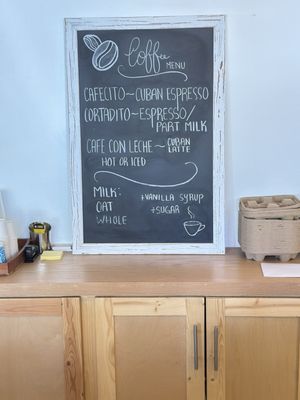 Coffee
MENU
CAFECITO~CUBAN ESPRESSO
CORTADITO~ESPRESSO/
PART MILK
CAFE CON LECHE~CUBAN
LATTE
HOT OR ICED
MILK:
OAT
WHOLE
+VANILLA SYRUP
+SUGAR